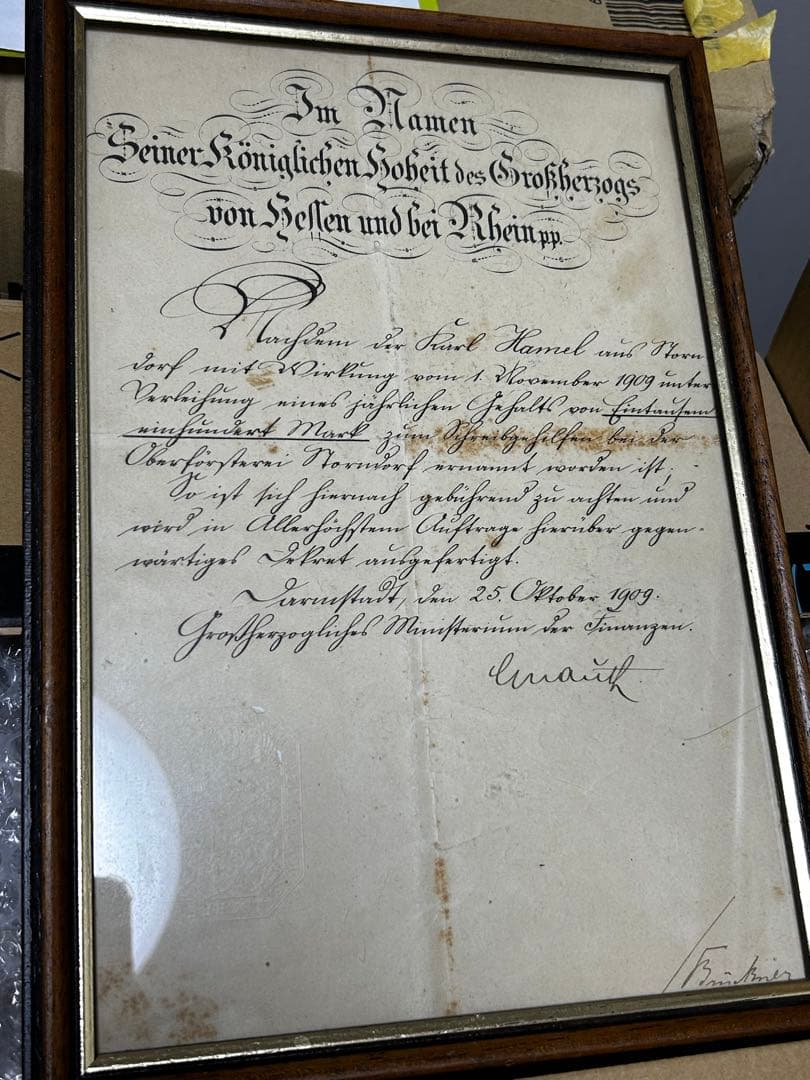 Im Namen
Seiner Königlichen Hoheit des Großherzogs
von Hessen und bei Rhein pp.
Nachdem der Karl Hamel aus Storn
dorf mit Wirkung vom 1. November 1909 unter
Verleihung eines jährlichen Gehalts von Eintausend
einhundert Mark zum Schreibgehilfen bei der
Oberförsterei Storndorf ernannt worden ist;
So ist sich hiernach gebührend zu achten und
wird in Allerhöchstem Auftrage hierüber gegen-
wärtiges Dekret ausgefertigt.
Darmstadt, den 25. Oktober 1909.
Großherzogliches Ministerium der Finanzen.
Gnauth